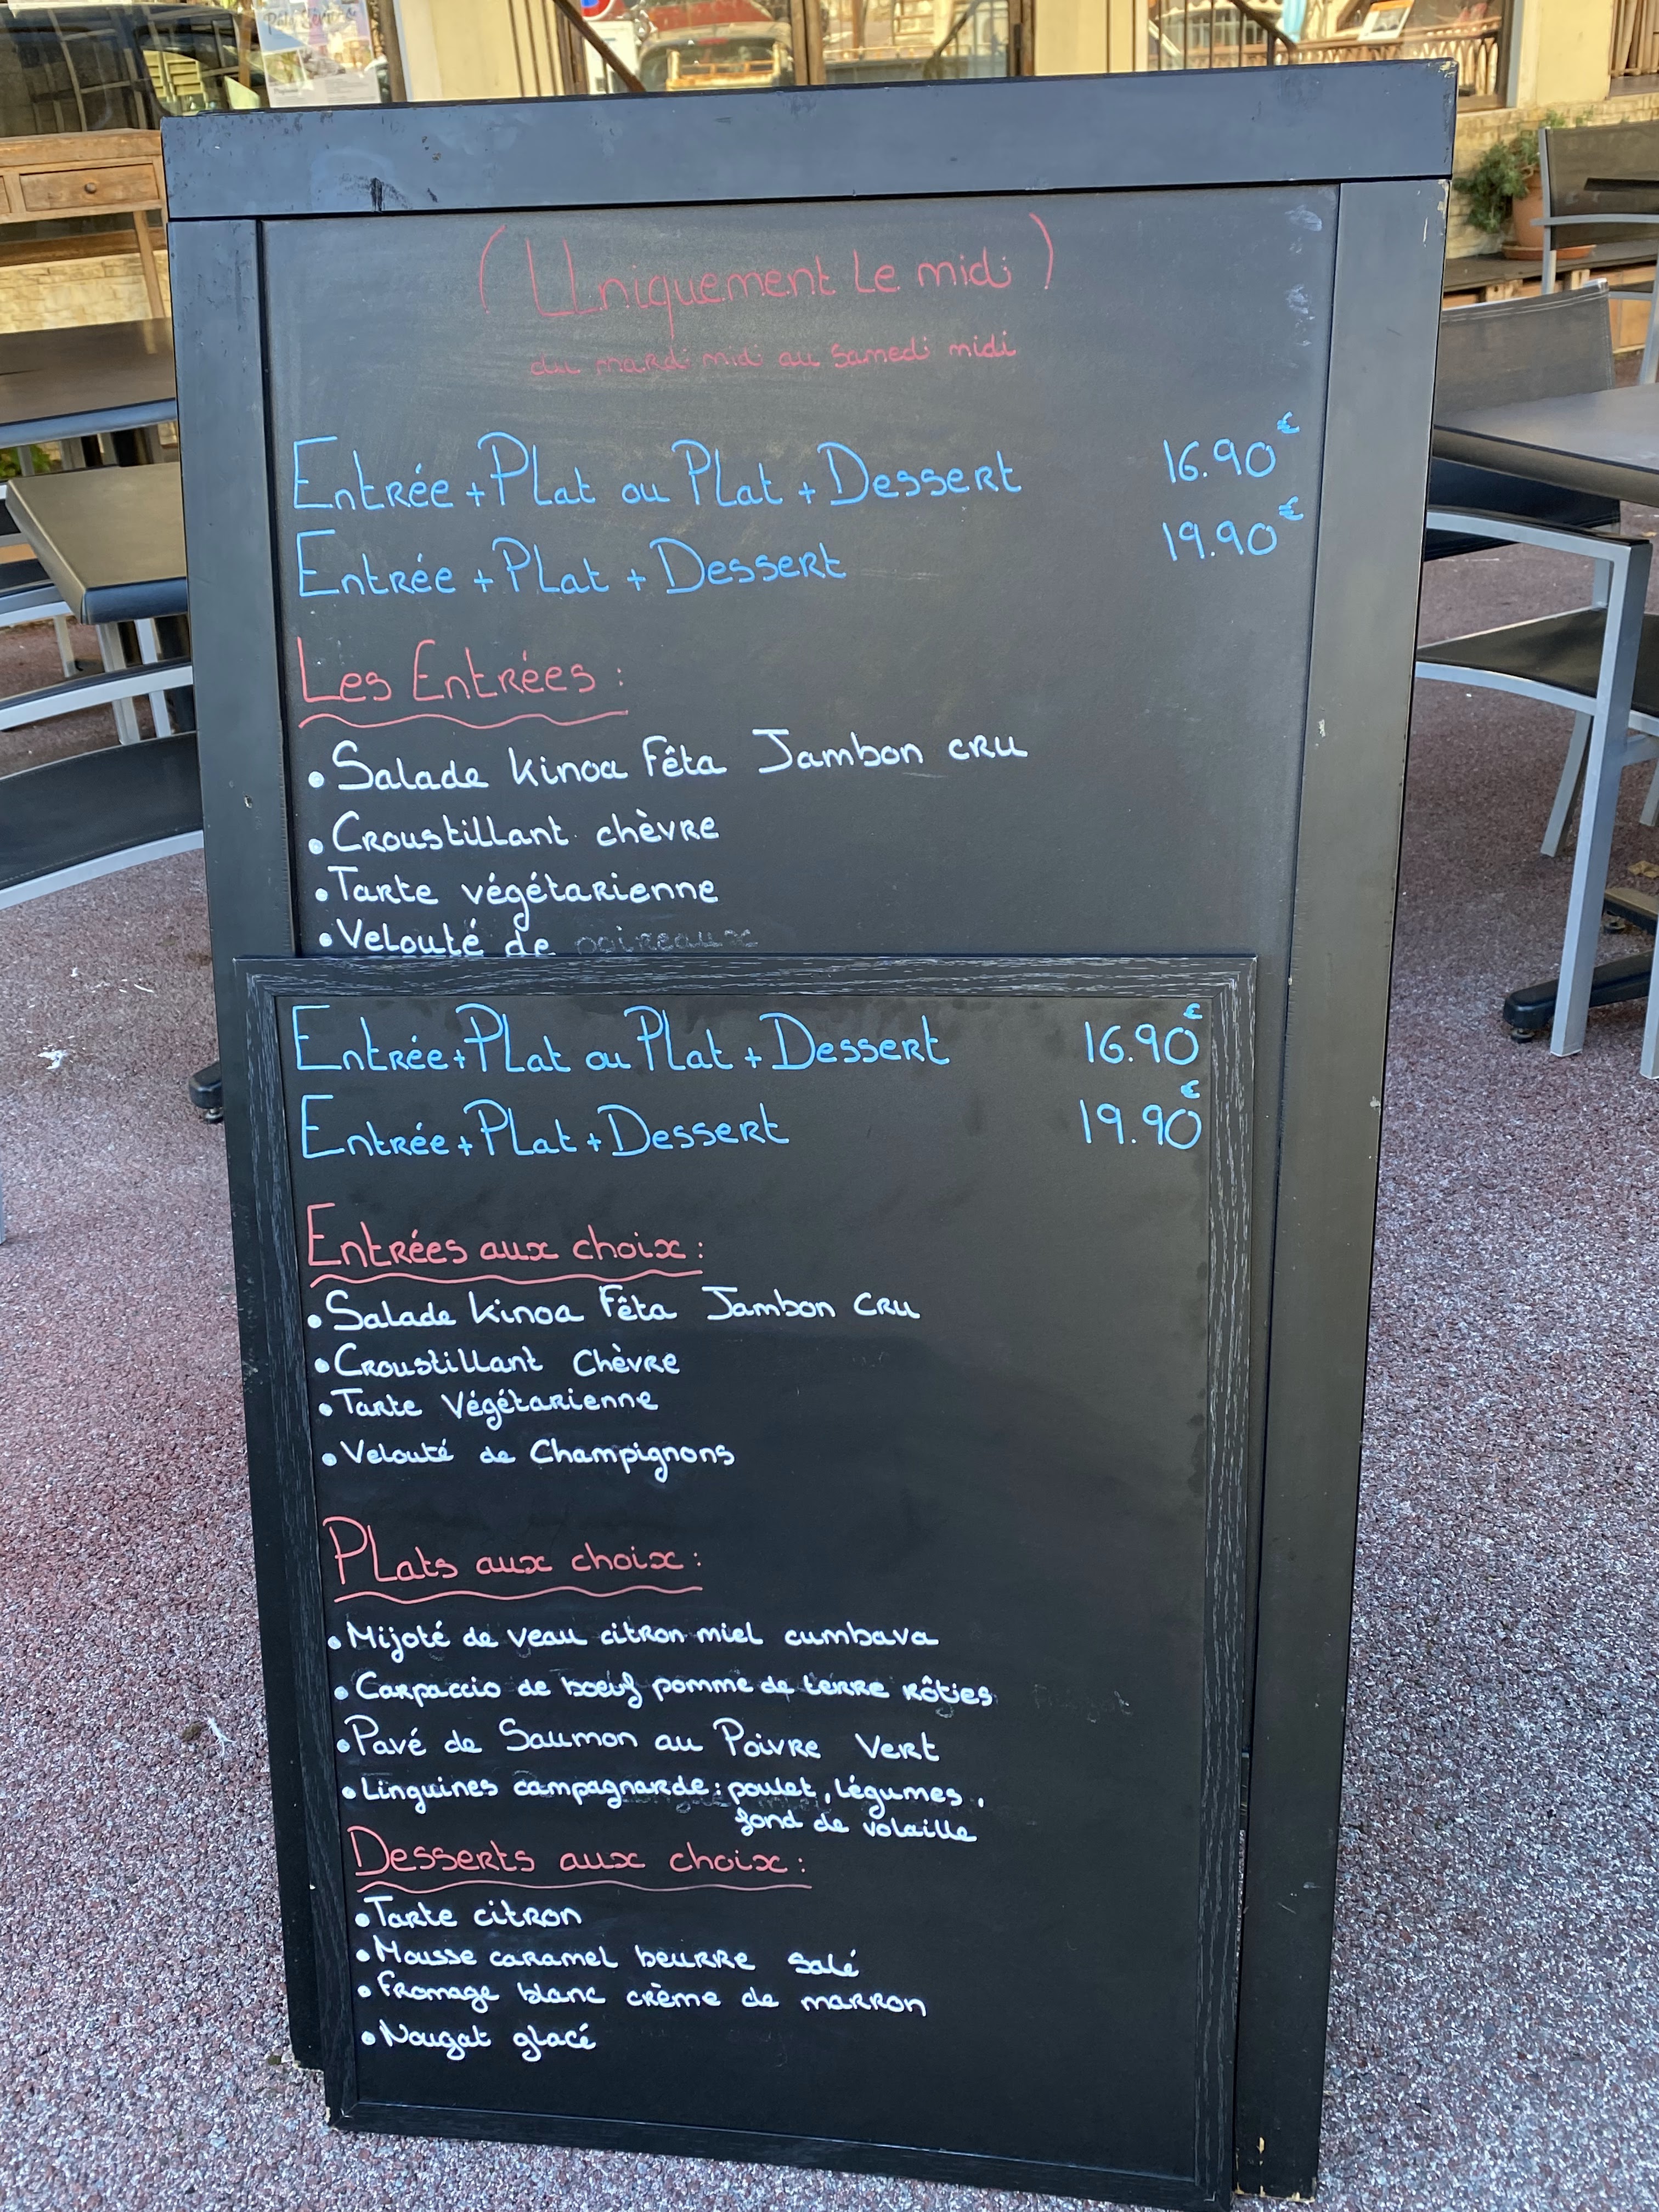 (Uniquement Le midi)
du mardi midi au Samedi midi
Entrée + Plat ou Plat + Dessert 16.90€
Entrée + Plat + Dessert 19.90€
Les Entrées :
• Salade Kinoa Fêta Jambon cru
• Croustillant chèvre
• Tarte végétarienne
• Velouté de poireaux
Entrée + Plat ou Plat + Dessert 16.90€
Entrée + Plat + Dessert 19.90€
Entrées aux choix :
• Salade Kinoa Fêta Jambon Cru
• Croustillant Chèvre
• Tarte Végétarienne
• Velouté de Champignons
Plats aux choix :
• Mijoté de veau citron miel cumbava
• Carpaccio de boeuf pomme de terre rôties
• Pavé de Saumon au Poivre Vert
• Linguines campagnarde : poulet, légumes,
fond de volaille
Desserts aux choix :
• Tarte citron
• Mousse caramel beurre salé
• Fromage blanc crème de marron
• Nougat glacé